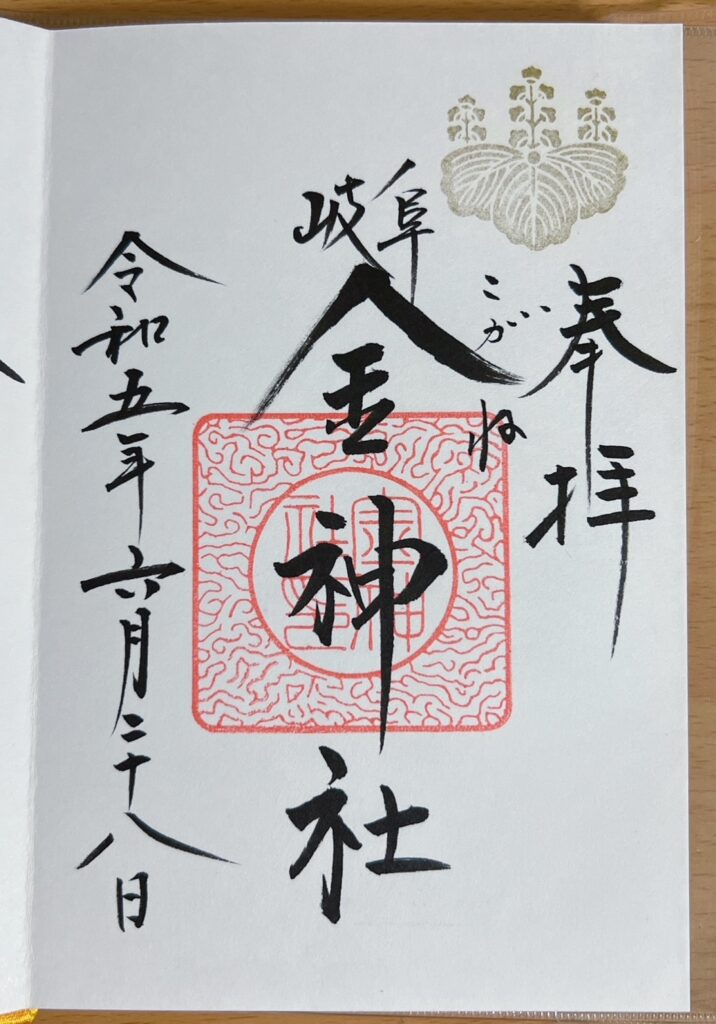 奉拝
こがね
岐阜
金神社
令和五年六月二十八日